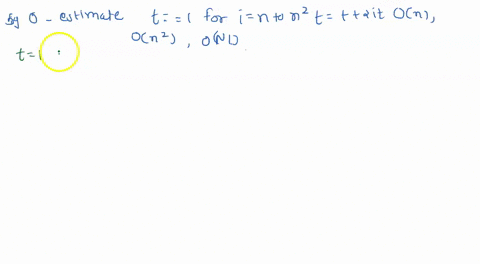 By O - estimate t: = 1 for i = n to n² t = t + 2it O(n),
O(n²), O(N!)
t = 1